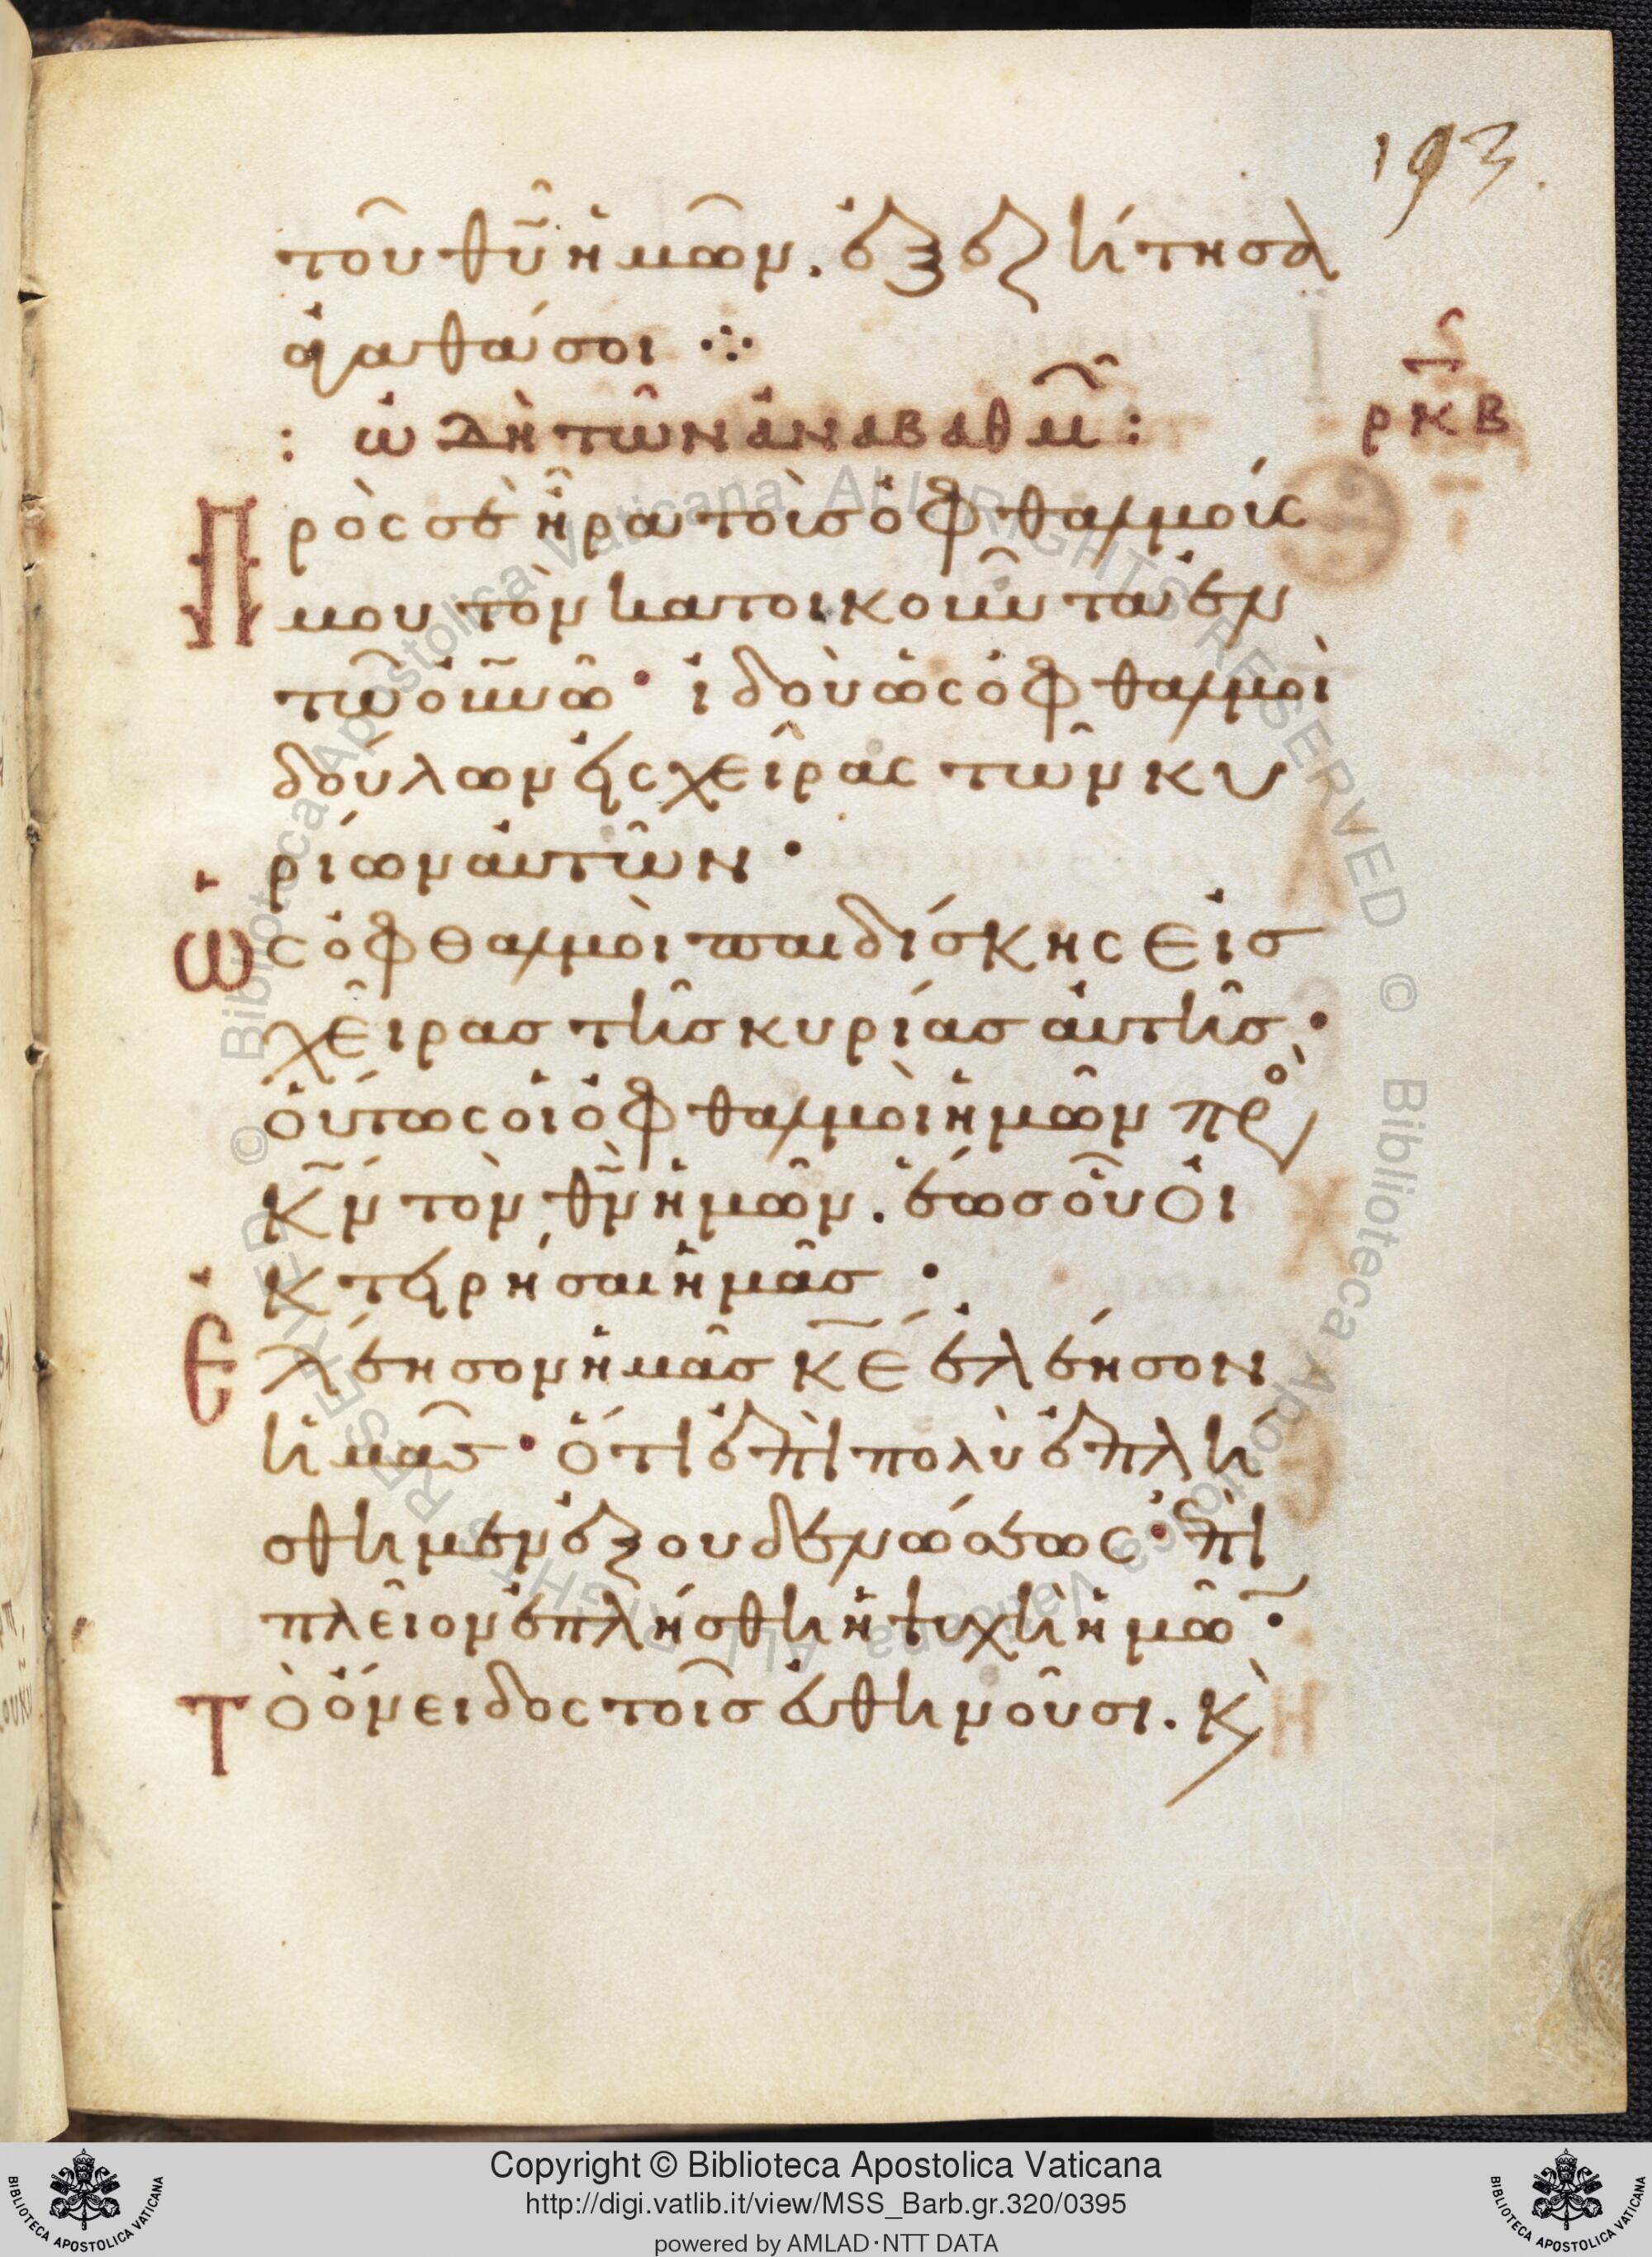 193.
τοῦ θῦ ἡμῶν. ἐξεζήτησα
ἀγαθά σοι ⁘
: ὠδὴ τῶν ἀναβαθμ̑ :
ρκβ
Πρὸς σὲ ἦρα τοὺσ ὀφθαλμούς
μου τὸν κατοικοῦντα ἐν
τῶ οὐνῶ· ἰδοὺ ὡς ὀφθαλμοὶ
δούλων εἰς χεῖρας τῶν κυ
ρίων αὐτῶν·
Ὡς ὀφθαλμοὶ παιδίσκης εἰσ
χεῖρασ τῆσ κυρίασ αὐτῆσ·
οὕτως οἱ ὀφθαλμοὶ ἡμῶν πρὸ
κν τὸν θν ἡμῶν. ἕωσ οὗ οἰ
κτειρήσαι ἡμᾶσ·
Ἐλέησον ἡμᾶσ κε ἐλέησον
ἡμᾶσ· ὅτι ἐπὶ πολὺ ἐπλή
σθημεν ἐξουδενώσεως· ἐπὶ
πλεῖον ἐπλήσθη ἡ ψυχὴ ἡμῶ·
Τὸ ὄνειδος τοῖσ εὐθηνοῦσι. κὶ
Copyright © Biblioteca Apostolica Vaticana
http://digi.vatlib.it/view/MSS_Barb.gr.320/0395
powered by AMLAD·NTT DATA
BIBLIOTECA APOSTOLICA VATICANA
BIBLIOTECA APOSTOLICA VATICANA